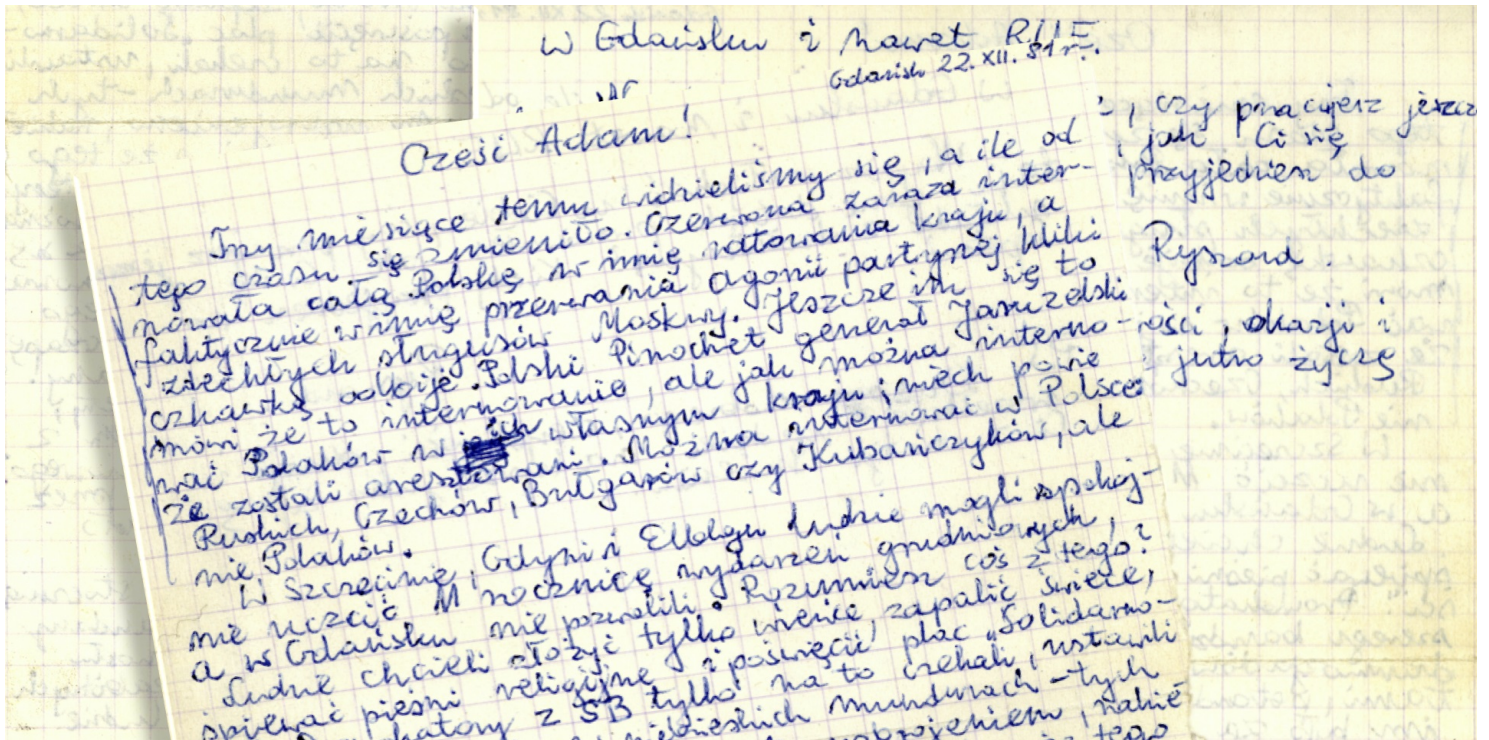 w Gdańsku i nawet
Gdańsk 22.XII.81 r.
Cześć Adam!
Trzy miesiące temu widzieliśmy się, a ile od
tego czasu się zmieniło. Czerwona zaraza inter-
nowała całą Polskę w imię ratowania kraju, a
faktycznie w imię przerwania agonii partyjnej kliki
zdechłych sługusów Moskwy. Jeszcze im się to
czkawką odbije. Polski Pinochet generał Jaruzelski
mówi że to internowanie, ale jak można interno-
wać Polaków w ich własnym kraju, niech powie
że zostali aresztowani. Można internować w Polsce
Ruskich, Czechów, Bułgarów czy Kubańczyków, ale
nie Polaków.
W Szczecinie, Gdyni i Elblągu ludzie mogli spokoj-
nie uczcić 11 rocznicę wydarzeń grudniowych,
a w Gdańsku nie pozwolili. Rozumiesz coś z tego?
Ludzie chcieli złożyć tylko wieńce, zapalić świece,
śpiewać pieśni religijne i poświęcić plac „Solidarno-
z SB tylko na to czekali, ustawili
mundurach - tych
tego
, czy pracujesz jeszcze
, jak Ci się
przyjedziesz do
Ryszard.
ości, okazji i
jutro życzę